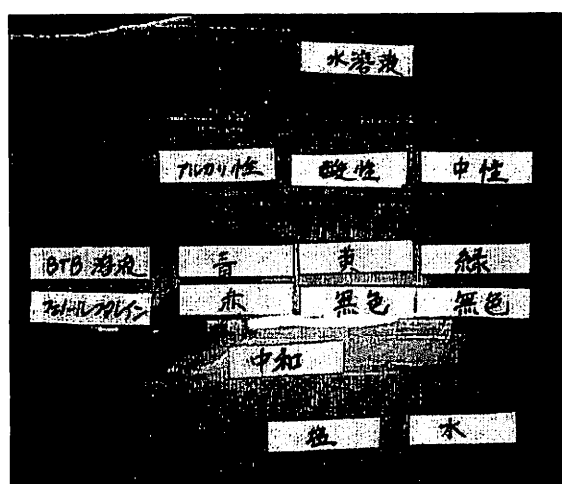 水溶液
アルカリ性 酸性 中性
BTB溶液 青 黄 緑
フェノールフタレイン 赤 無色 無色
中和
塩 水